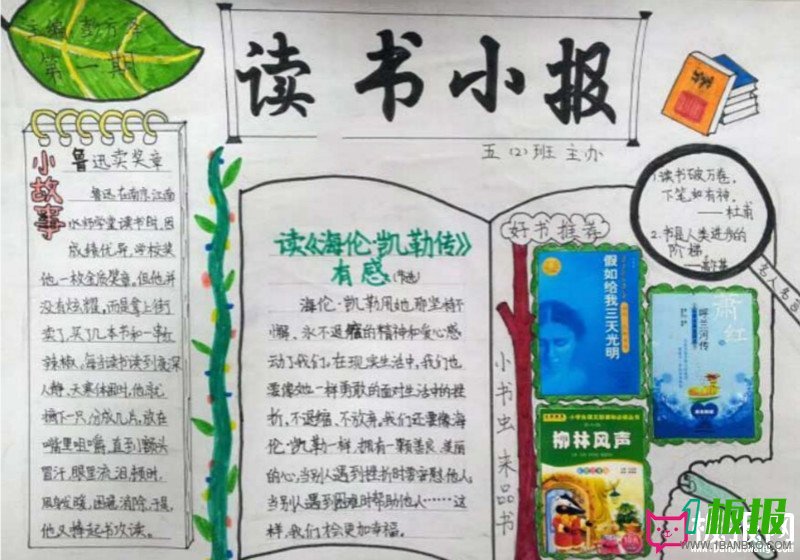 主编
第一期
读书小报
五(2)班 主办
小故事
鲁迅卖奖章
鲁迅在南京江南
水师学堂读书时,因
成绩优异,学校奖
他一枚金质奖章,但他并
没有炫耀,而是拿上街
卖了,买了几本书和一串红
辣椒,每当读书读到夜深
人静,天寒体困时,他就
摘下一只,分成几片,放在
嘴里咀嚼,直到额头
冒汗,眼里流泪,顿时,
周身发暖,困意消除,于是,
他又捧起书攻读。
读《海伦·凯勒传》
有感
海伦·凯勒用她那坚持不
懈、永不退缩的精神和爱心感
动了我们,在现实生活中,我们也
要像她一样勇敢的面对生活中的挫
折,不退缩、不放弃,我们还要像海
伦·凯勒一样,拥有一颗善良、美丽
的心,当别人遇到挫折时要安慰他人,
当别人遇到困难时帮助他人……这
样,我们会更加幸福。
好书推荐
小书虫来品书
假如给我三天光明
萧红
呼兰河传
柳林风声
1.读书破万卷,
下笔如有神。
——杜甫
2.书是人类进步的
阶梯
——高尔基
名人名言
1板报
WWW.1BANBAO.COM